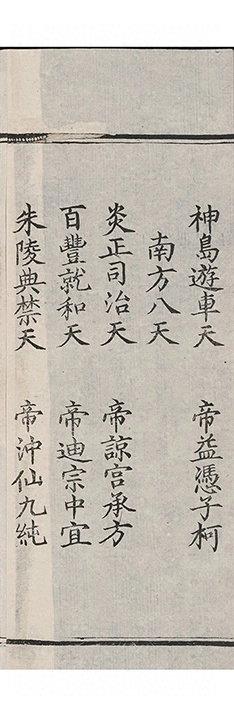 神島遊車天　帝益憑子柯
南方八天
炎正司治天　帝諒宫承方
百豐就和天　帝迪宗中宜
朱陵典禁天　帝沖仙九純